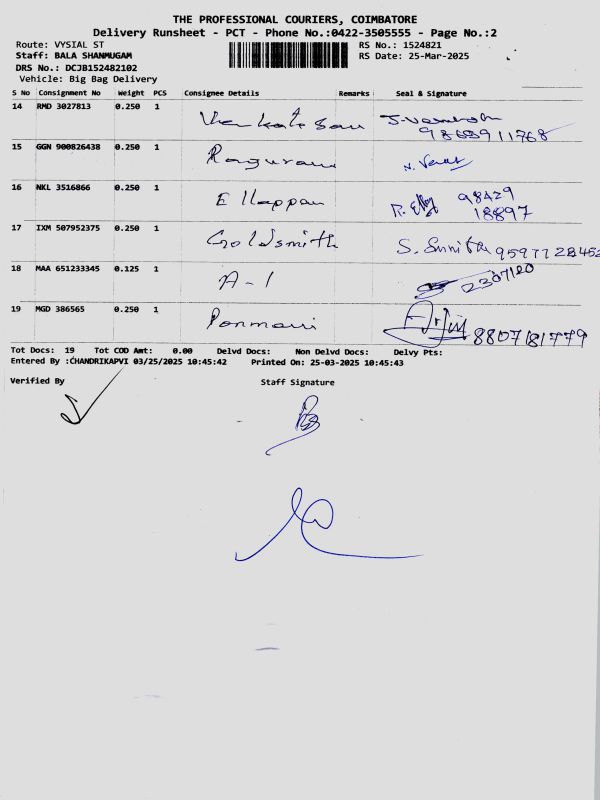 THE PROFESSIONAL COURIERS, COIMBATORE
Delivery Runsheet - PCT - Phone No.:0422-3505555 - Page No.:2
Route: VYSIAL ST
Staff: BALA SHANMUGAM
DRS No.: DCJB152482102
Vehicle: Big Bag Delivery
RS No.: 1524821
RS Date: 25-Mar-2025
S No Consignment No Weight PCS Consignee Details Remarks Seal & Signature
14 RMD 3027813 0.250 1 Venkatesan
9865911768
15 GGN 900826438 0.250 1 Raguram
16 NKL 3516866 0.250 1 Ellappan 98429
18897
17 IXM 507952375 0.250 1 Goldsmith S.
18 MAA 651233345 0.125 1 A-1 2307120
19 MGD 386565 0.250 1 Ponmani 8807181779
Tot Docs: 19 Tot COD Amt: 0.00 Delvd Docs: Non Delvd Docs: Delvy Pts:
Entered By :CHANDRIKAPVI 03/25/2025 10:45:42 Printed On: 25-03-2025 10:45:43
Verified By Staff Signature